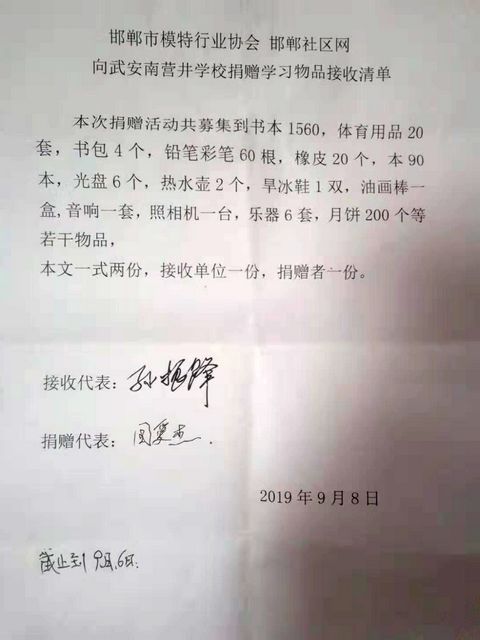 邯郸市模特行业协会 邯郸社区网
向武安南营井学校捐赠学习物品接收清单
本次捐赠活动共募集到书本1560，体育用品20
套，书包4个，铅笔彩笔60根，橡皮20个，本90
本，光盘6个，热水壶2个，旱冰鞋1双，油画棒一
盒,音响一套，照相机一台，乐器6套，月饼200个等
若干物品，
本文一式两份，接收单位一份，捐赠者一份。
接收代表：孙振锋
捐赠代表：
2019年9月8日
截止到9月6日.